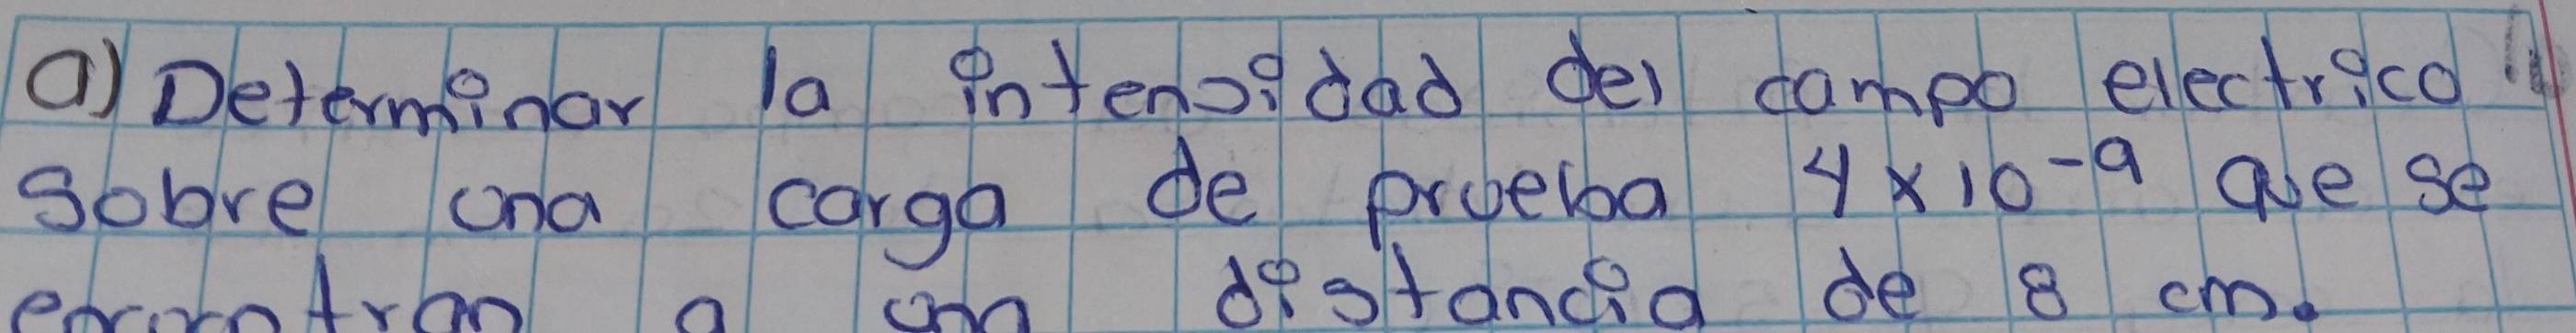 a) Determinar la intensidad del campo electrico
Sobre una carga de prueba 4x10⁻⁹ que se
encontran a una distancia de 8 cm.